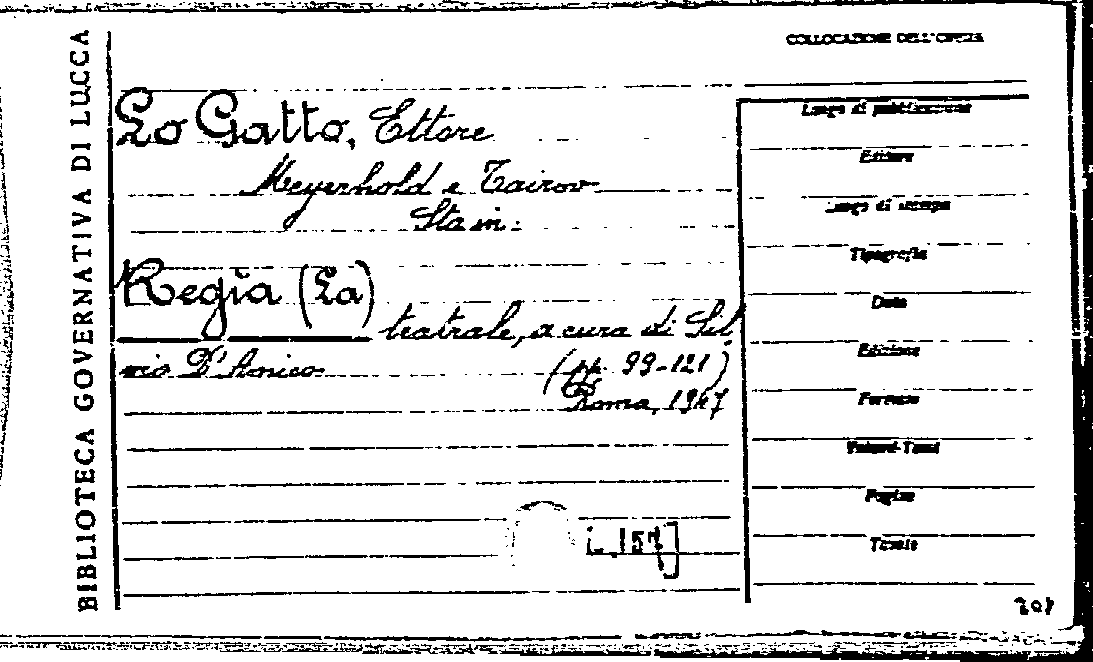 BIBLIOTECA GOVERNATIVA DI LUCCA
COLLOCAZIONE DELL'OPERA
Lo Gatto, Ettore
Meyerhold e Tairov
Sta in:
Regia (La)
teatrale, a cura di Sil
vio D'Amico (pp. 99-121)
Roma, 1947
Luogo di pubblicazione
Editore
Luogo di stampa
Tipografia
Data
Edizione
Formato
Volumi-Tomi
Pagine
Tavole